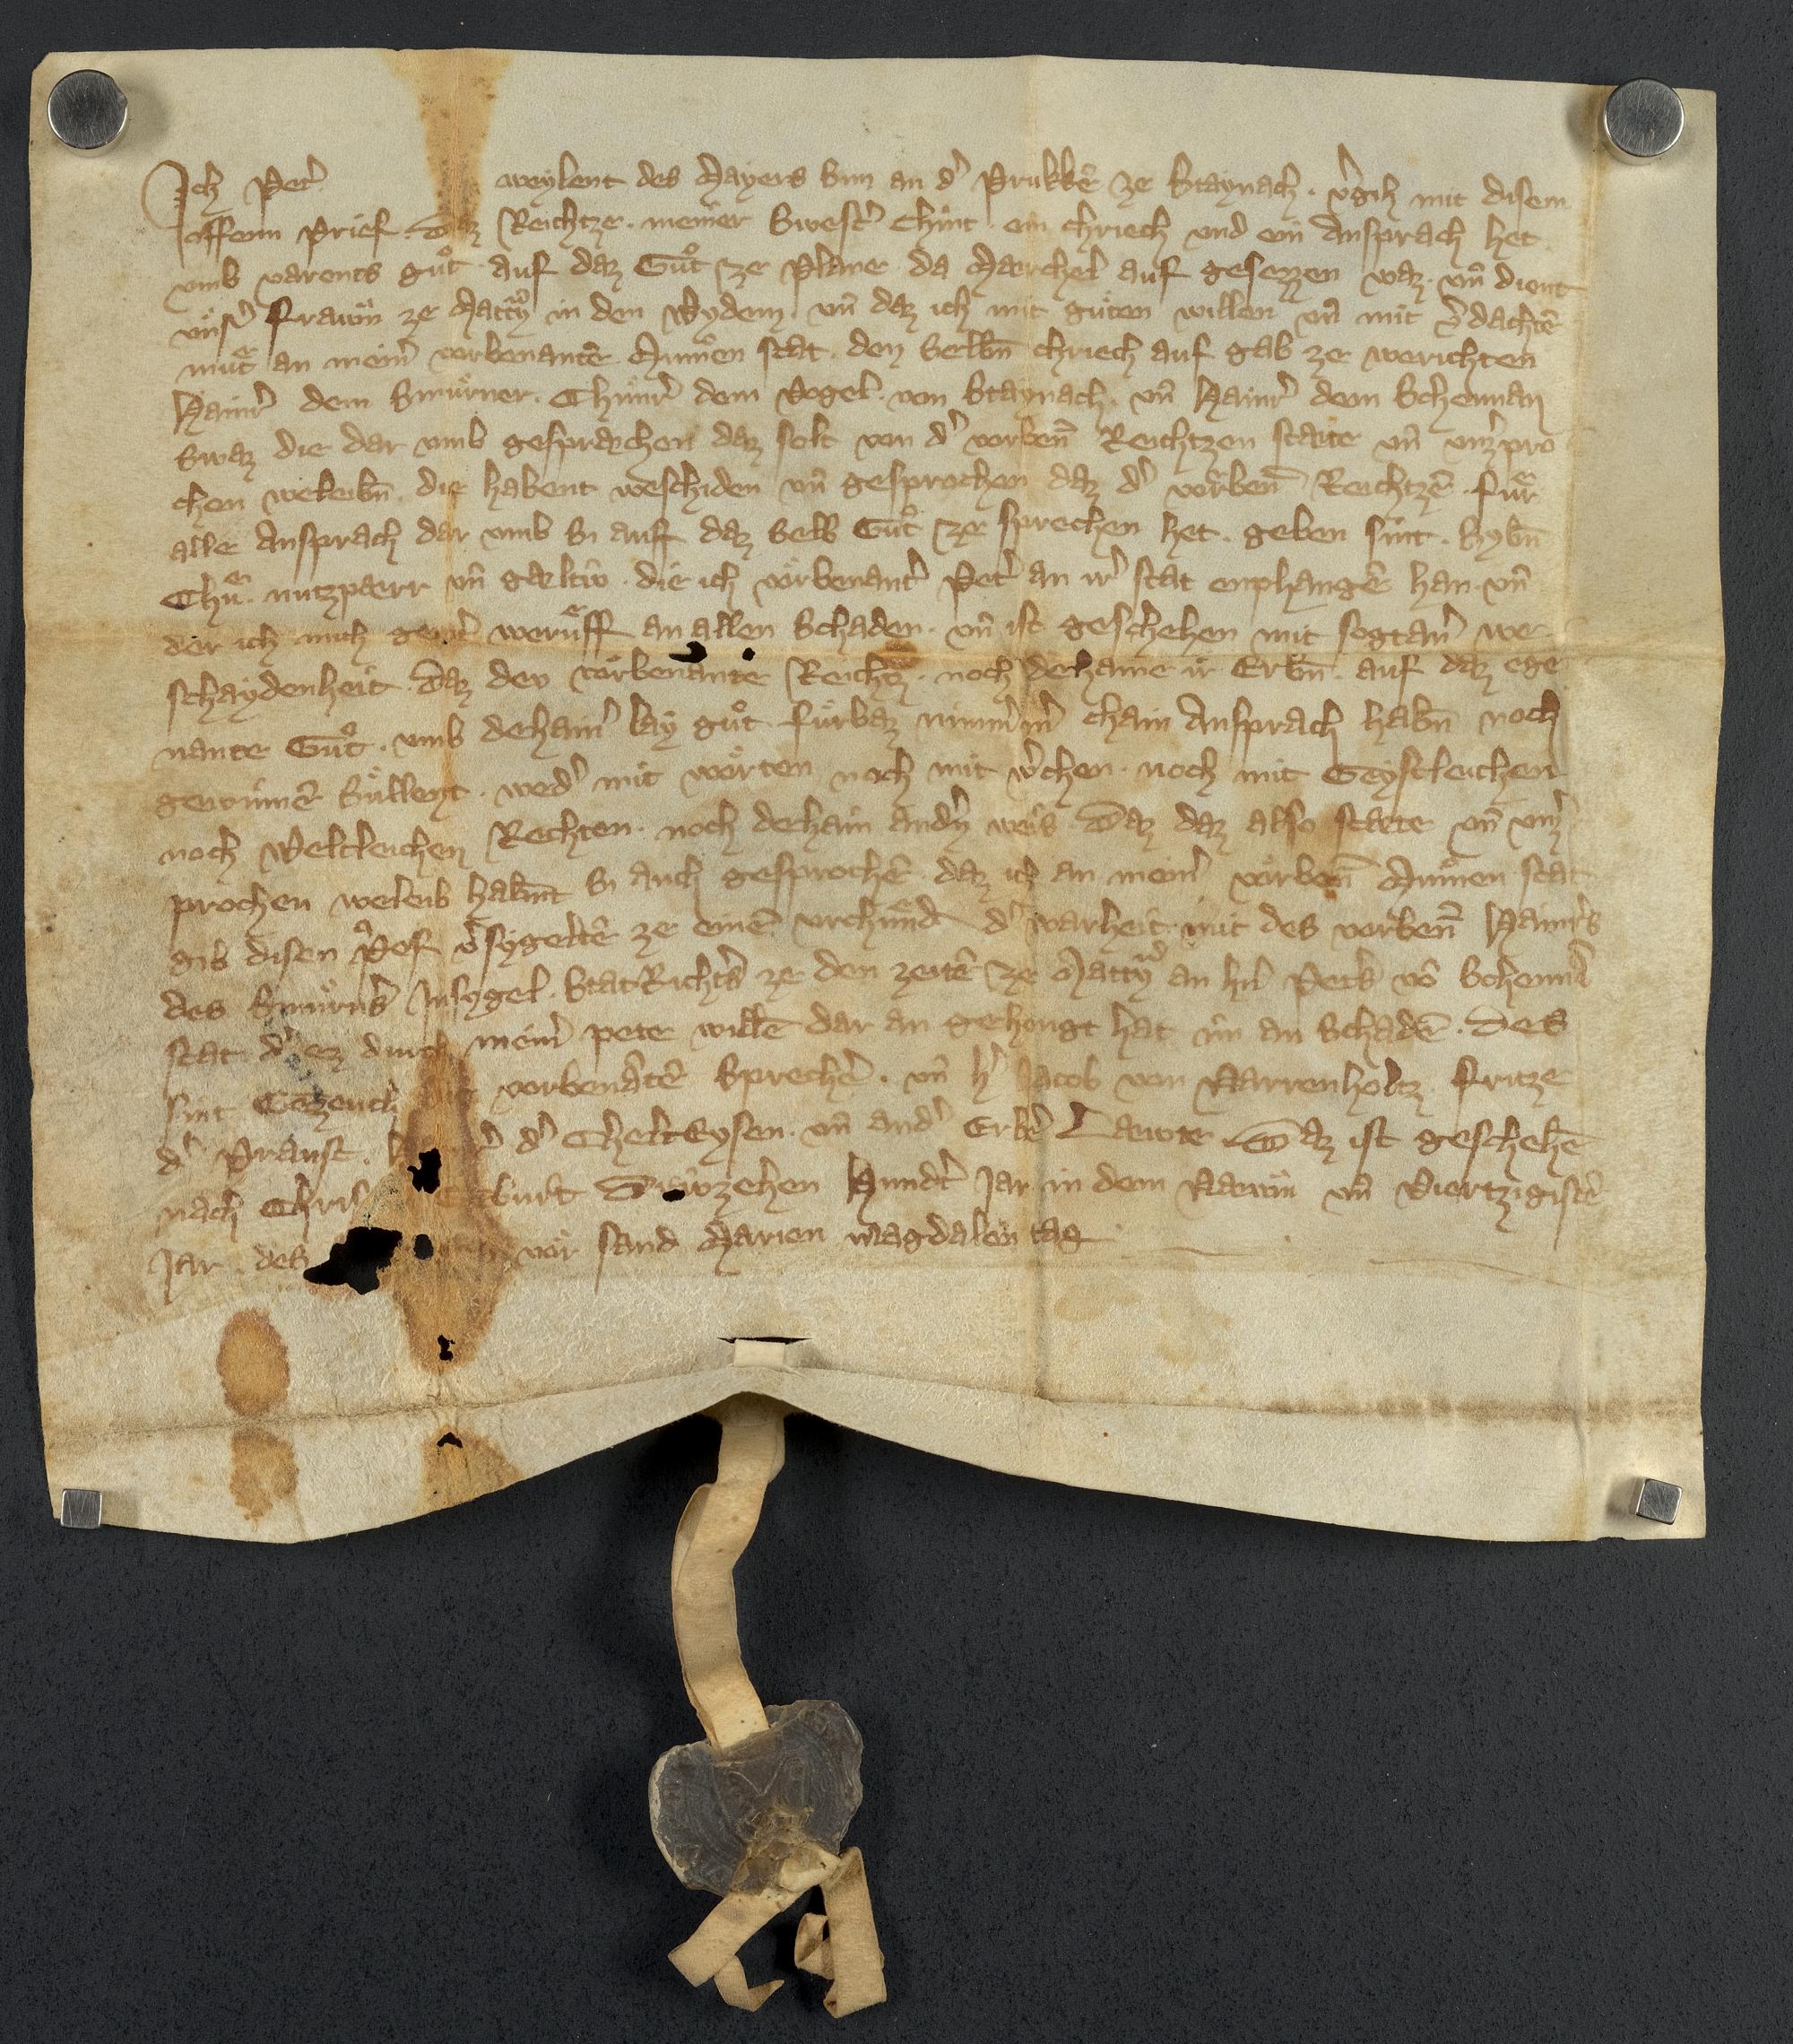 Ich Pet͛ weylent des Mayers Sun an d͛ Prukkē ze Staynach · v͛gih mit disem
offenn Prief · Daz Reichtze · meiner Swest͛ Chint · ein chriech vnd ein Ansprach het ·
vmb varents guͦt · auf daz Guͦt ze Plane · da Maerchel auf gesezzen waz · vn̄ dient
vnser͛ Frawn ze Matr͛y in den Wydem · vn̄ daz ich mit guten willen vn̄ mit v͛dachtē
muͤt an mein͛ vorbenantē · Mumen stat · den selbn̄ chriech auf gab ze werichten
Hainr͛ dem Smurner · Chunr͛ dem Vogel · von Staynach · vn̄ Hainr͛ dem Schennan
Swaz die dar vmb gespraechen daz solt von d͛ vorben̄ Reichtzen staete vn̄ vnz͛pro
chen weleibn̄ · die habent weschiden vn̄ gesprochen daz d͛ vorben̄ Reichtzē · fuͤr
alle Ansprach dar vmb Si auf daz Selb Guͦt ze sprechen het · geben sint · Sybn̄
Chuͤ · nutzpaerr vn̄ gaeltiv · die ich vorbenant͛ Pet͛ an ir͛ stat enphangē han · vn̄
der ich mich gent͛ weruͤff an allen Schaden · vn̄ ist geschehen mit sogtan͛ we
schaydenheit · Daz dev vorbenante Reichtz · noch dehaine ir Erbn̄ · auf daz ege
nante Guͦt · vmb dehain͛ lay guͦt furbaz nimm͛m͛ chain Ansprach habn̄ noch
gewinnē Sullent · wed͛ mit worten noch mit w͛chen · noch mit Geystleichen
noch Weltleichen Rechten · noch dehain andn͛ weis · Daz daz also staete vn̄ vnz͛
prochen weleib habn̄t Si auch gesprochē · daz ich an mein͛ vorben̄ Mumen stat
gib disen Pref v͛sygeltē ze einē vrchund d͛ warheit mit des vorben̄ Hainr͛s
des Smurn͛s Insygel · StatRicht͛s ze den zeitē ze Matr͛y an hn͛ Pet͛s vō Schenn͛
stat d͛ ez durch mein͛ pete willē dar an gehengt hat im an Schadē · Des
sint Gezeuch die vorbenātē Sprechē · vn̄ h͛ Jacob von Narrenholtz · Fritze
d͛ Praust · d͛ CheltEysen · vn̄ and͛ Erb͛ Laewte · Daz ist geschehē
nach Chris Geburt Driwzehen Hundt͛ Jar in dem Naewn vn̄ Viertzigistē
Jar · des vor sand Marien magdalen tag